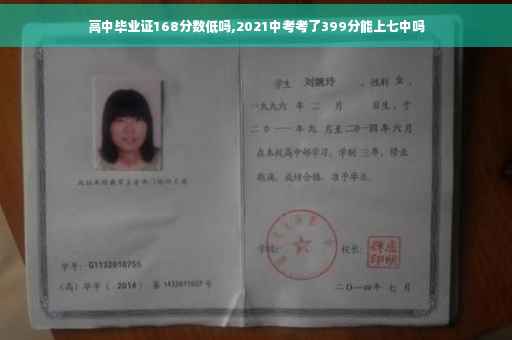 高中毕业证168分数低吗,2021中考考了399分能上七中吗
学生 刘婉玲 ，性别 女 ，
一九九六 年 二 月 日生，于
二〇一一年 九 月至二〇一四年 六 月
在本校高中部学习，学制 三年，修业
期满，成绩合格，准予毕业。
学校： 校长：
学号： G1132010755
（高）毕字（ 2014 ）第 1432011027 号
二〇一四年 七 月